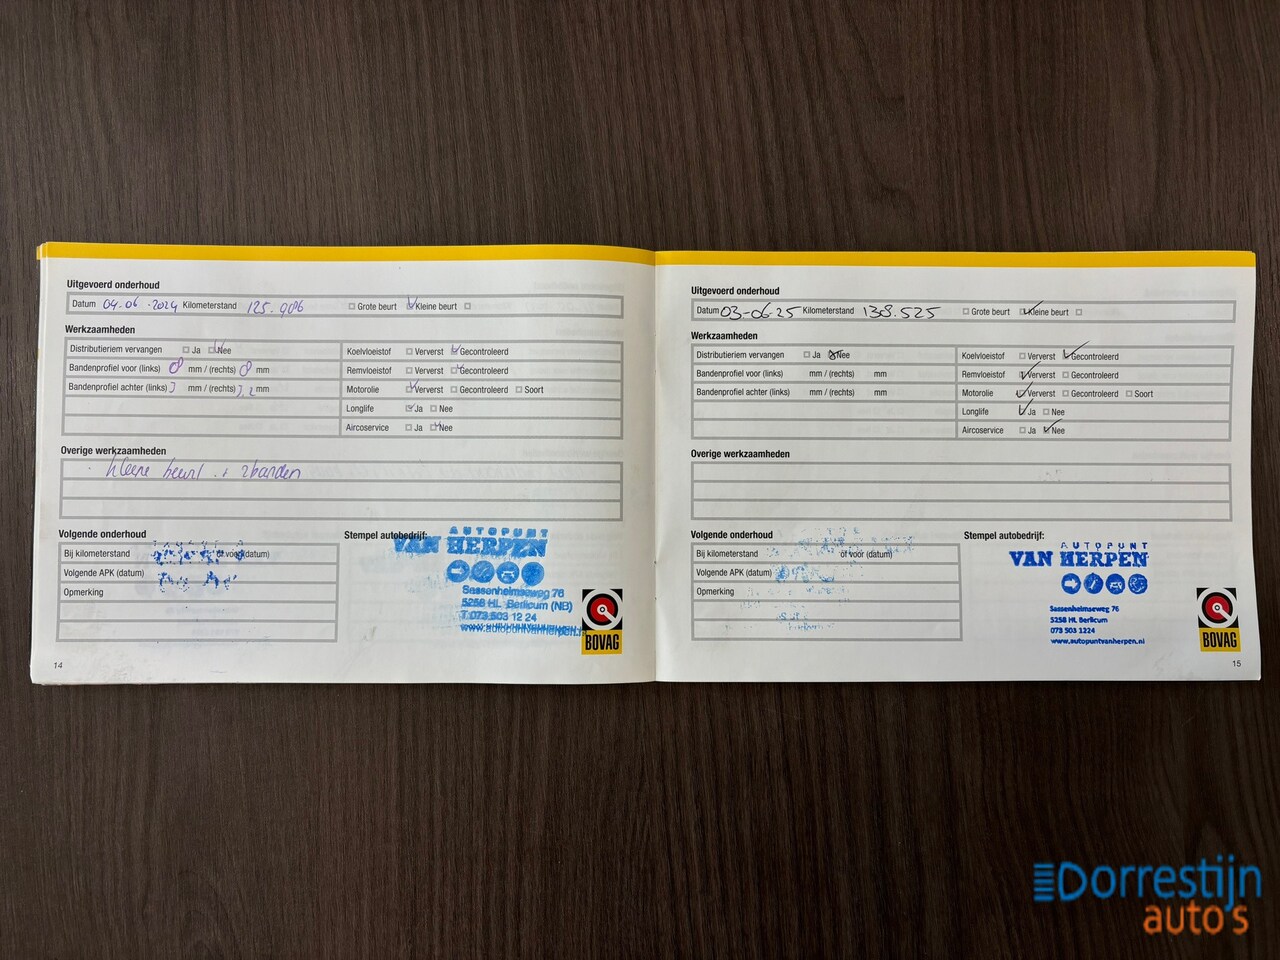 Uitgevoerd onderhoud
Datum 04-06-2024 Kilometerstand 125.986 Grote beurt Kleine beurt
Werkzaamheden
Distributieriem vervangen Ja Nee
Bandenprofiel voor (links) 8 mm / (rechts) 8 mm
Bandenprofiel achter (links) mm / (rechts) mm
Koelvloeistof Ververst Gecontroleerd
Remvloeistof Ververst Gecontroleerd
Motorolie Ververst Gecontroleerd Soort
Longlife Ja Nee
Aircoservice Ja Nee
Overige werkzaamheden
kleine beurt + 2 banden
Volgende onderhoud
Bij kilometerstand of voor (datum)
Volgende APK (datum)
Opmerking
Stempel autobedrijf:
AUTOPUNT
VAN HERPEN
Sassenheimseweg 76
5258 HL Berlicum (NB)
T 073 503 12 24
www.autopuntvanherpen.nl
BOVAG
14
Uitgevoerd onderhoud
Datum 03-06-25 Kilometerstand 138.525 Grote beurt Kleine beurt
Werkzaamheden
Distributieriem vervangen Ja Nee
Bandenprofiel voor (links) mm / (rechts) mm
Bandenprofiel achter (links) mm / (rechts) mm
Koelvloeistof Ververst Gecontroleerd
Remvloeistof Ververst Gecontroleerd
Motorolie Ververst Gecontroleerd Soort
Longlife Ja Nee
Aircoservice Ja Nee
Overige werkzaamheden
Volgende onderhoud
Bij kilometerstand of voor (datum)
Volgende APK (datum)
Opmerking
Stempel autobedrijf:
AUTOPUNT
VAN HERPEN
Sassenheimseweg 76
5258 HL Berlicum
073 503 1224
www.autopuntvanherpen.nl
BOVAG
15
Dorrestijn
auto's